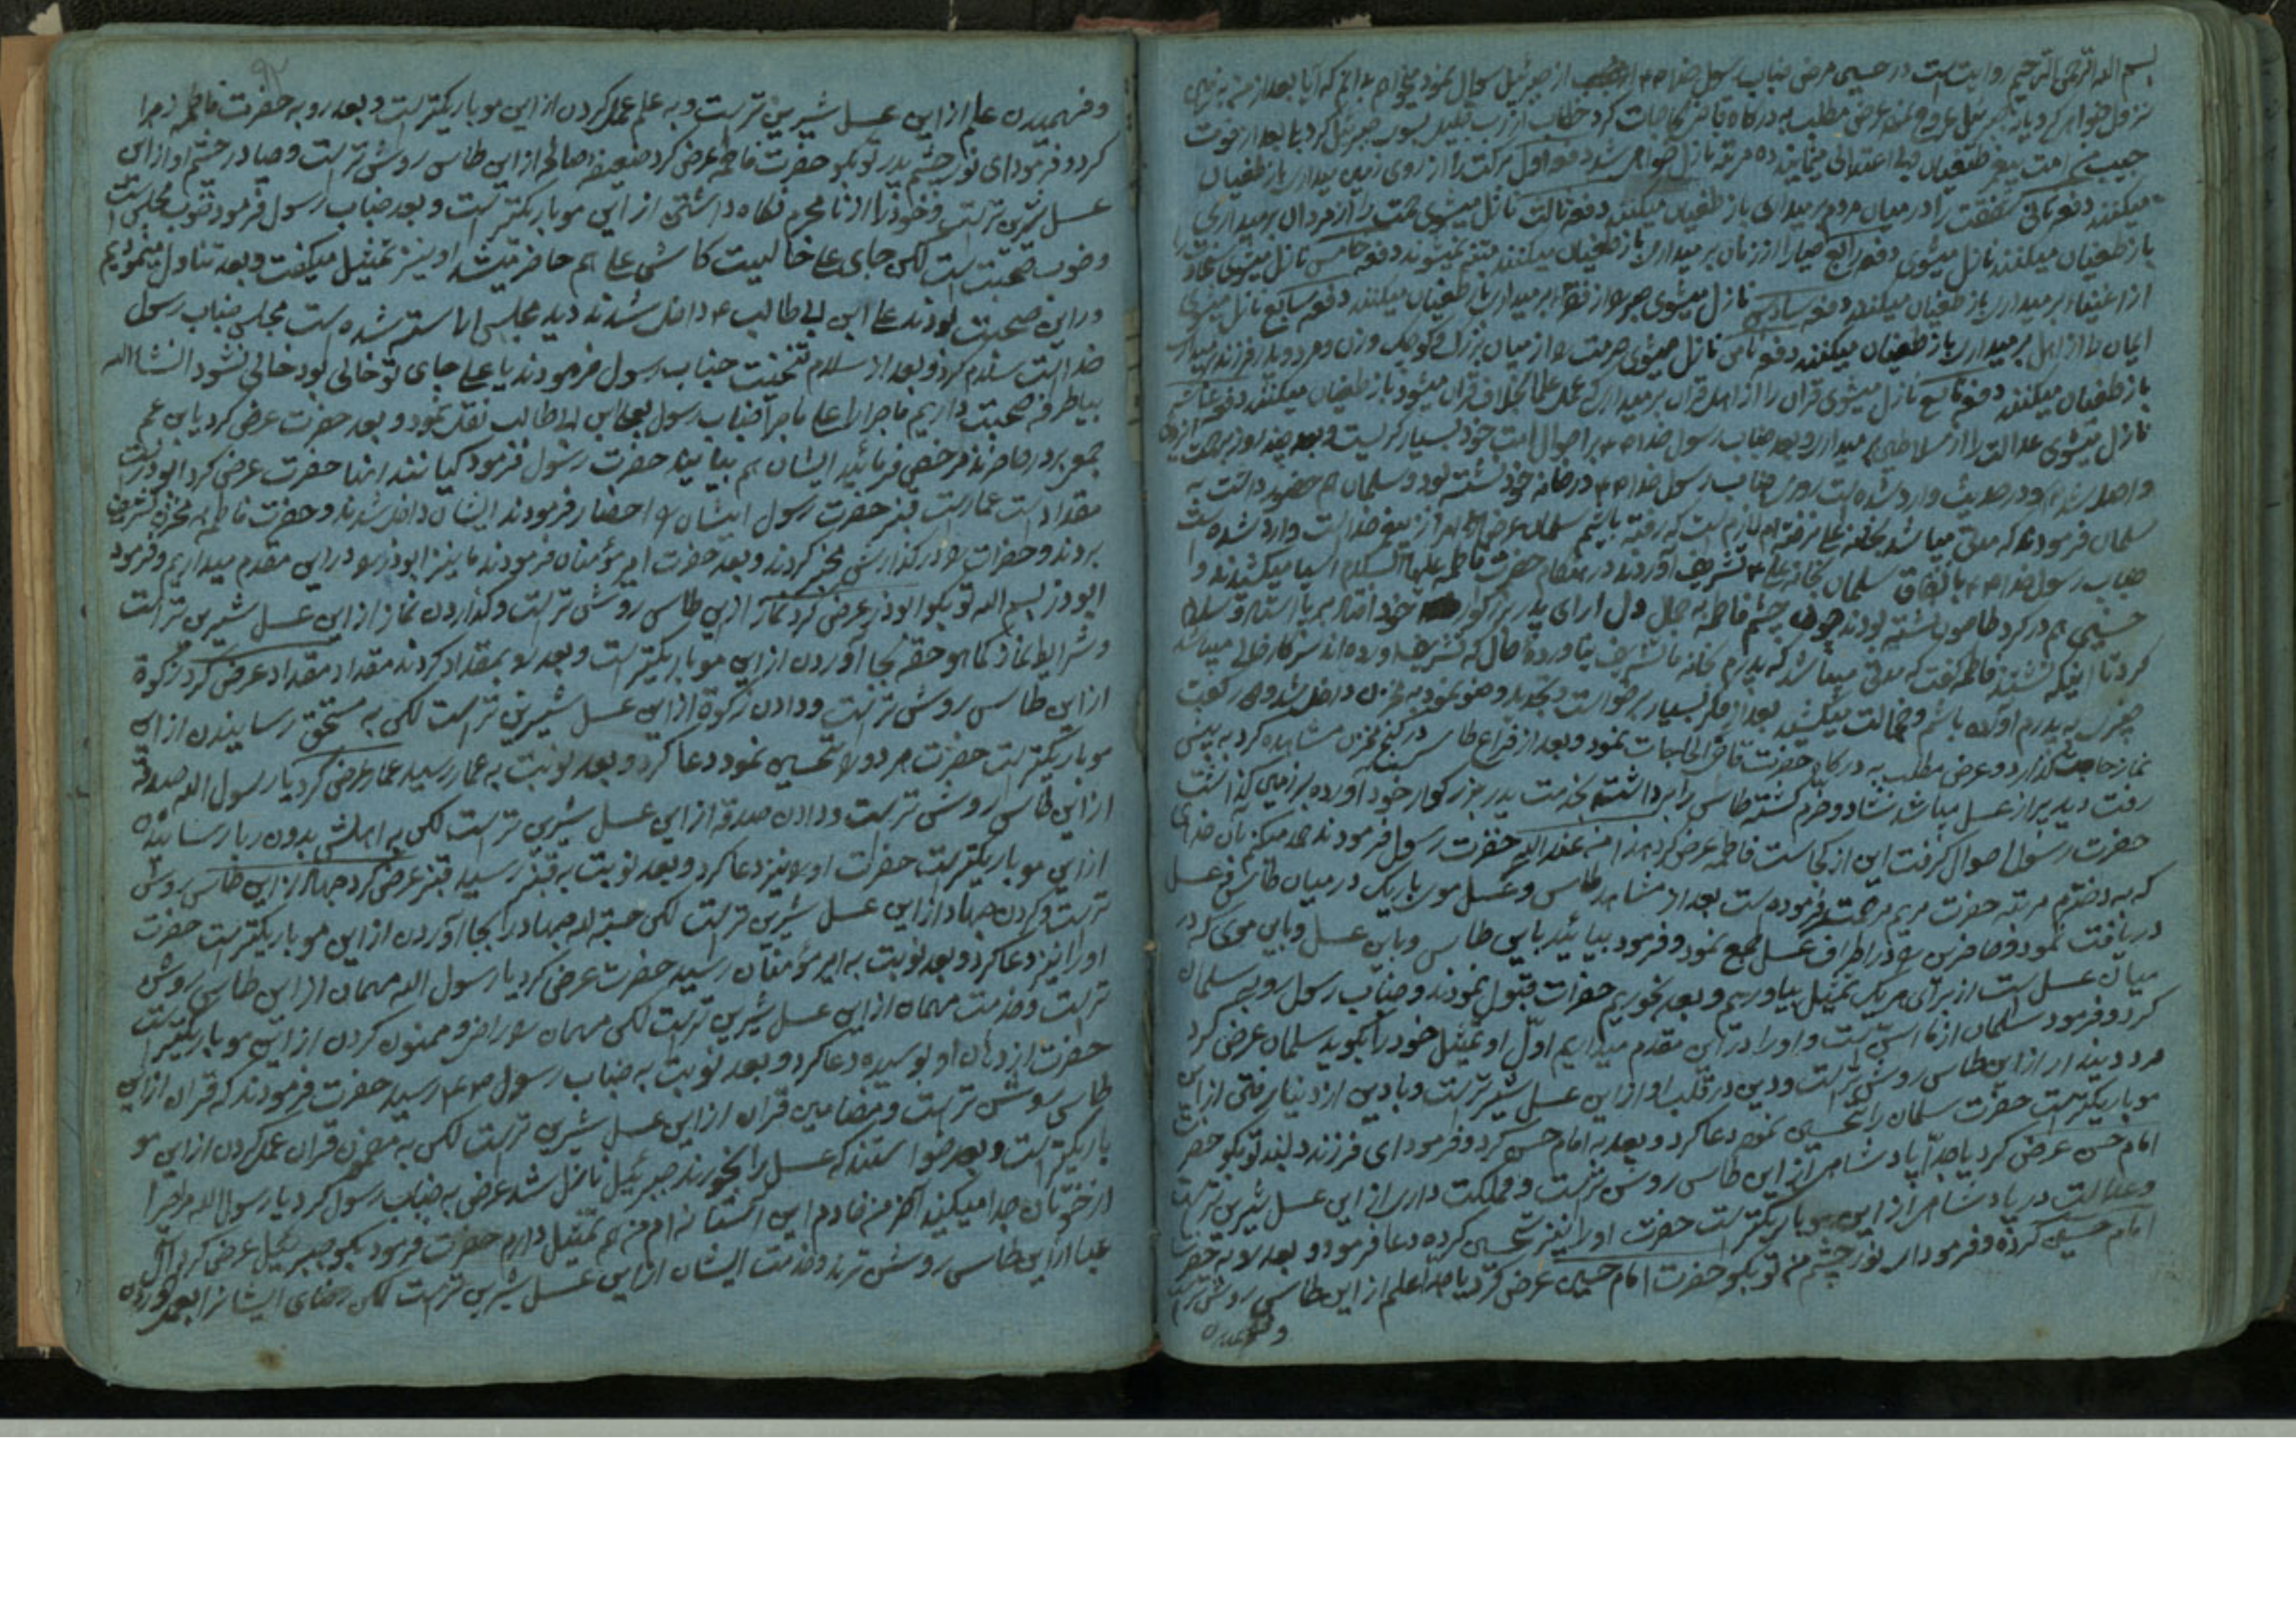 بسم الله الرحمن الرحیم روایت است در حسین مرض جناب رسول خدا از جبرئیل سوال نمود میخواهم بدانم که آیا بعد از من بزمین
نزول خواهی کرد یا نه جبرئیل عروج نمود عرض مطلب به درگاه قاضی الحاجات کرد خطاب از رب جلیل بسوی جبرئیل کرد یا بعد از فوت
حبیب امت پیغمبر طغیان نمایند ده مرتبه نازل خواهی شد دفعه اول برکت را از روی زمین میداری باز طغیان
میکنند دفعه ثانی شفقت را در میان مردم برمیداری باز طغیان میکنند دفعه ثالث نازل میشوی همت را از مردان برمیداری
باز طغیان میکنند نازل میشوی دفعه رابع حیا را از زنان برمیداری باز طغیان میکنند متنبه نمیشوند دفعه خامس نازل میشوی
از اغنیا برمیداری باز طغیان میکنند دفعه سادس نازل میشوی صبر را از فقرا برمیداری باز طغیان میکنند دفعه سابع نازل میشوی
ایمان را از اهل برمیداری باز طغیان میکنند دفعه ثامن نازل میشوی حرمت را از میان بزرگ و کوچک و زن و مرد و پدر فرزند میداری
باز طغیان میکنند دفعه تاسع نازل میشوی قران را از اهل قران برمیداری که عمل علما بخلاف قران میشود باز طغیان میکنند دفعه عاشر
نازل میشوی عدالت را از سلاطین میداری و بعد جناب رسول خدا بر احوال امت خود بسیار گریست و بعد چند روز
واصل شد و در حدیث وارد شده است روزی جناب رسول خدا در خانه خود نشسته بود و سلمان هم حضور داشت به
سلمان فرمودند که مدتی میباشد بخانه علی نرفته‌ام لازم است که رفته باشم سلمان عرض از پیغمبر خداست وارد شده است
جناب رسول خدا باتفاق سلمان بخانه علی تشریف آوردند در هنگام حضرت فاطمه علیها السلام آسیا میکشیدند و
حسین هم در گرد نشسته بودند چون چشم فاطمه به جمال دل آرای پدر بزرگوار خود افتاد برپا ایستاد و سلام
کرد تا اینکه نشستند فاطمه گفت که مدتی میباشد که پدرم خانه ما تشریف نیاورده حال که تشریف آورده‌اند سرکار خالی میباشد
چیزی به پدرم آورده باشم و خجالت میکشید بعد از فکر بسیار برخواست و تجدید وضو نمود به مخزن داخل شد و دو رکعت
نماز حاجت گذارد و عرض مطلب به درگاه حضرت قاضی الحاجات نمود و بعد از فراغ طاس در کنج مخزن مشاهده کرد به پیش
رفت دید پر از عسل میباشد شاد و خرم گشته طاس را برداشته بخدمت پدر بزرگوار خود آورده بر زمین گذاشت
حضرت رسول احوال گرفت این از کجاست فاطمه عرض کرد هذا من عند الله حضرت رسول فرمودند حمد میکنم بآن خدای
که به دخترم مرتبه حضرت مریم مرحمت فرموده است بعد از مشاهده طاس و عسل مو باریک در میان طاس عسل
دریافت نمود و حاضرین را در اطراف عسل جمع نمود و فرمود بیائید باین طاس و باین عسل و باین موی که در
میان عسل است از برای هر یک تمثیل بیاوریم و بعد بخوریم حضرات قبول نمودند و جناب رسول رو به سلمان
کرد و فرمود سلمان از ما است و او را در این مقدم میداریم اول او تمثیل خود را بگوید سلمان عرض کرد
مرد دیندار از این طاس روشن تر است و دین در قلب او از این عسل شیرین تر است و با دین از دنیا رفتن از این
مو باریکتر است حضرت سلمان را تحسین نمود دعا کرد و بعد به امام حسن کرد و فرمود ای فرزند دلبند تو بگو حضرت
امام حسن عرض کرد یا جدا پادشاهی از این طاس روشن تر است و مملکت داری از این عسل شیرین تر است
و عدالت در پادشاهی از این مو باریکتر است حضرت او را نیز تحسین کرده دعا فرمود و بعد رو به حضرت
امام حسین کرده و فرمود ای نور چشم من تو بگو حضرت امام حسین عرض کرد یا جدا علم از این طاس روشن تر است
و فهمیدن
و فهمیدن علم از این عسل شیرین تر است و به علم عمل کردن از این مو باریکتر است و بعد رو به حضرت فاطمه زهرا
کرد و فرمود ای نور چشم پدر تو بگو حضرت فاطمه عرض کرد ضعیفه صالحه از این طاس روشن تر است و حیا در چشم او از این
عسل شیرین تر است و خود را از نامحرم نگاه داشتن از این مو باریکتر است و بعد جناب رسول فرمود خوب مجلس است
و خوب صحبت است لکن جای علی خالیست کاشی علی هم حاضر میشد او نیز تمثیل میگفت و بعد تناول مینمودیم
در این صحبت بودند علی ابن ابی طالب ع داخل شدند دید مجلس آراسته شده است مجلس جناب رسول
خداست سلام کرد و بعد از سلام تحیت جناب رسول فرمودند یا علی جای تو خالی بود خالی نشود انشاالله
بیا طرفه صحبت داریم ماجرا را علی ماجرا جناب رسول به علی ابن ابی طالب نقل نمود و بعد حضرت عرض کرد یا بن عم
جمعی بر در حاضرند مرخصی فرمائید ایشان هم بیایند حضرت رسول فرمود کیانند اینها حضرت عرض کرد ابوذر است
مقداد است عمار است قنبر حضرت رسول ایشان را احضار فرمودند ایشان داخل شدند و حضرت فاطمه به مخزن تشریف
بردند و حضرات را در گذارش مخبر کردند و بعد حضرت امیر مؤمنان فرمودند ما نیز ابوذر را در این مقدم میداریم و فرمود
ابوذر بسم الله تو بگو ابوذر عرض کرد نماز از این طاس روشن تر است و گذاردن نماز از این عسل شیرین تر است
و شرایط نماز کما هو حقه بجا آوردن از این مو باریکتر است و بعد رو بمقداد کردند مقداد عرض کرد زکوة
از این طاس روشن تر است و دادن زکوة از این عسل شیرین تر است لکن به مستحق رسانیدن از این
مو باریکتر است حضرت هر دو را تحسین نمود دعا کرد و بعد نوبت به عمار رسید عمار عرض کرد یا رسول الله صدقه
از این طاس روشن تر است و دادن صدقه از این عسل شیرین تر است لکن به اهلش بدون ریا رسانیدن
از این مو باریکتر است حضرت او را نیز دعا کرد و بعد نوبت به قنبر رسید قنبر عرض کرد جهاد از این طاس روشن
تر است و کردن جهاد از این عسل شیرین تر است لکن حسبة لله جهاد را بجا آوردن از این مو باریکتر است حضرت
او را نیز دعا کرد و بعد نوبت به امیر مؤمنان رسید حضرت عرض کرد یا رسول الله مهمان از این طاس روشن
تر است و خدمت مهمان از این عسل شیرین تر است لکن مهمان را راضی و ممنون کردن از این مو باریکتر است
حضرت از دهان او بوسیده دعا کرد و بعد نوبت به جناب رسول رسید حضرت فرمودند که قران از این
طاس روشن تر است و مضامین قران از این عسل شیرین تر است لکن به مضمون قران عمل کردن از این مو
باریکتر است و بعد خواستند که عسل را بخورند جبرئیل نازل شد عرض به جناب رسول کرد یا رسول الله مرا چرا
از خودتان جدا میکنید آخر من خادم این آستانه‌ام من هم تمثیل دارم حضرت فرمود بگو جبرئیل عرض کرد آل
عبا از این طاس روشن ترند و خدمت ایشان از این عسل شیرین تر است لکن رضای ایشان را بعمل آوردن